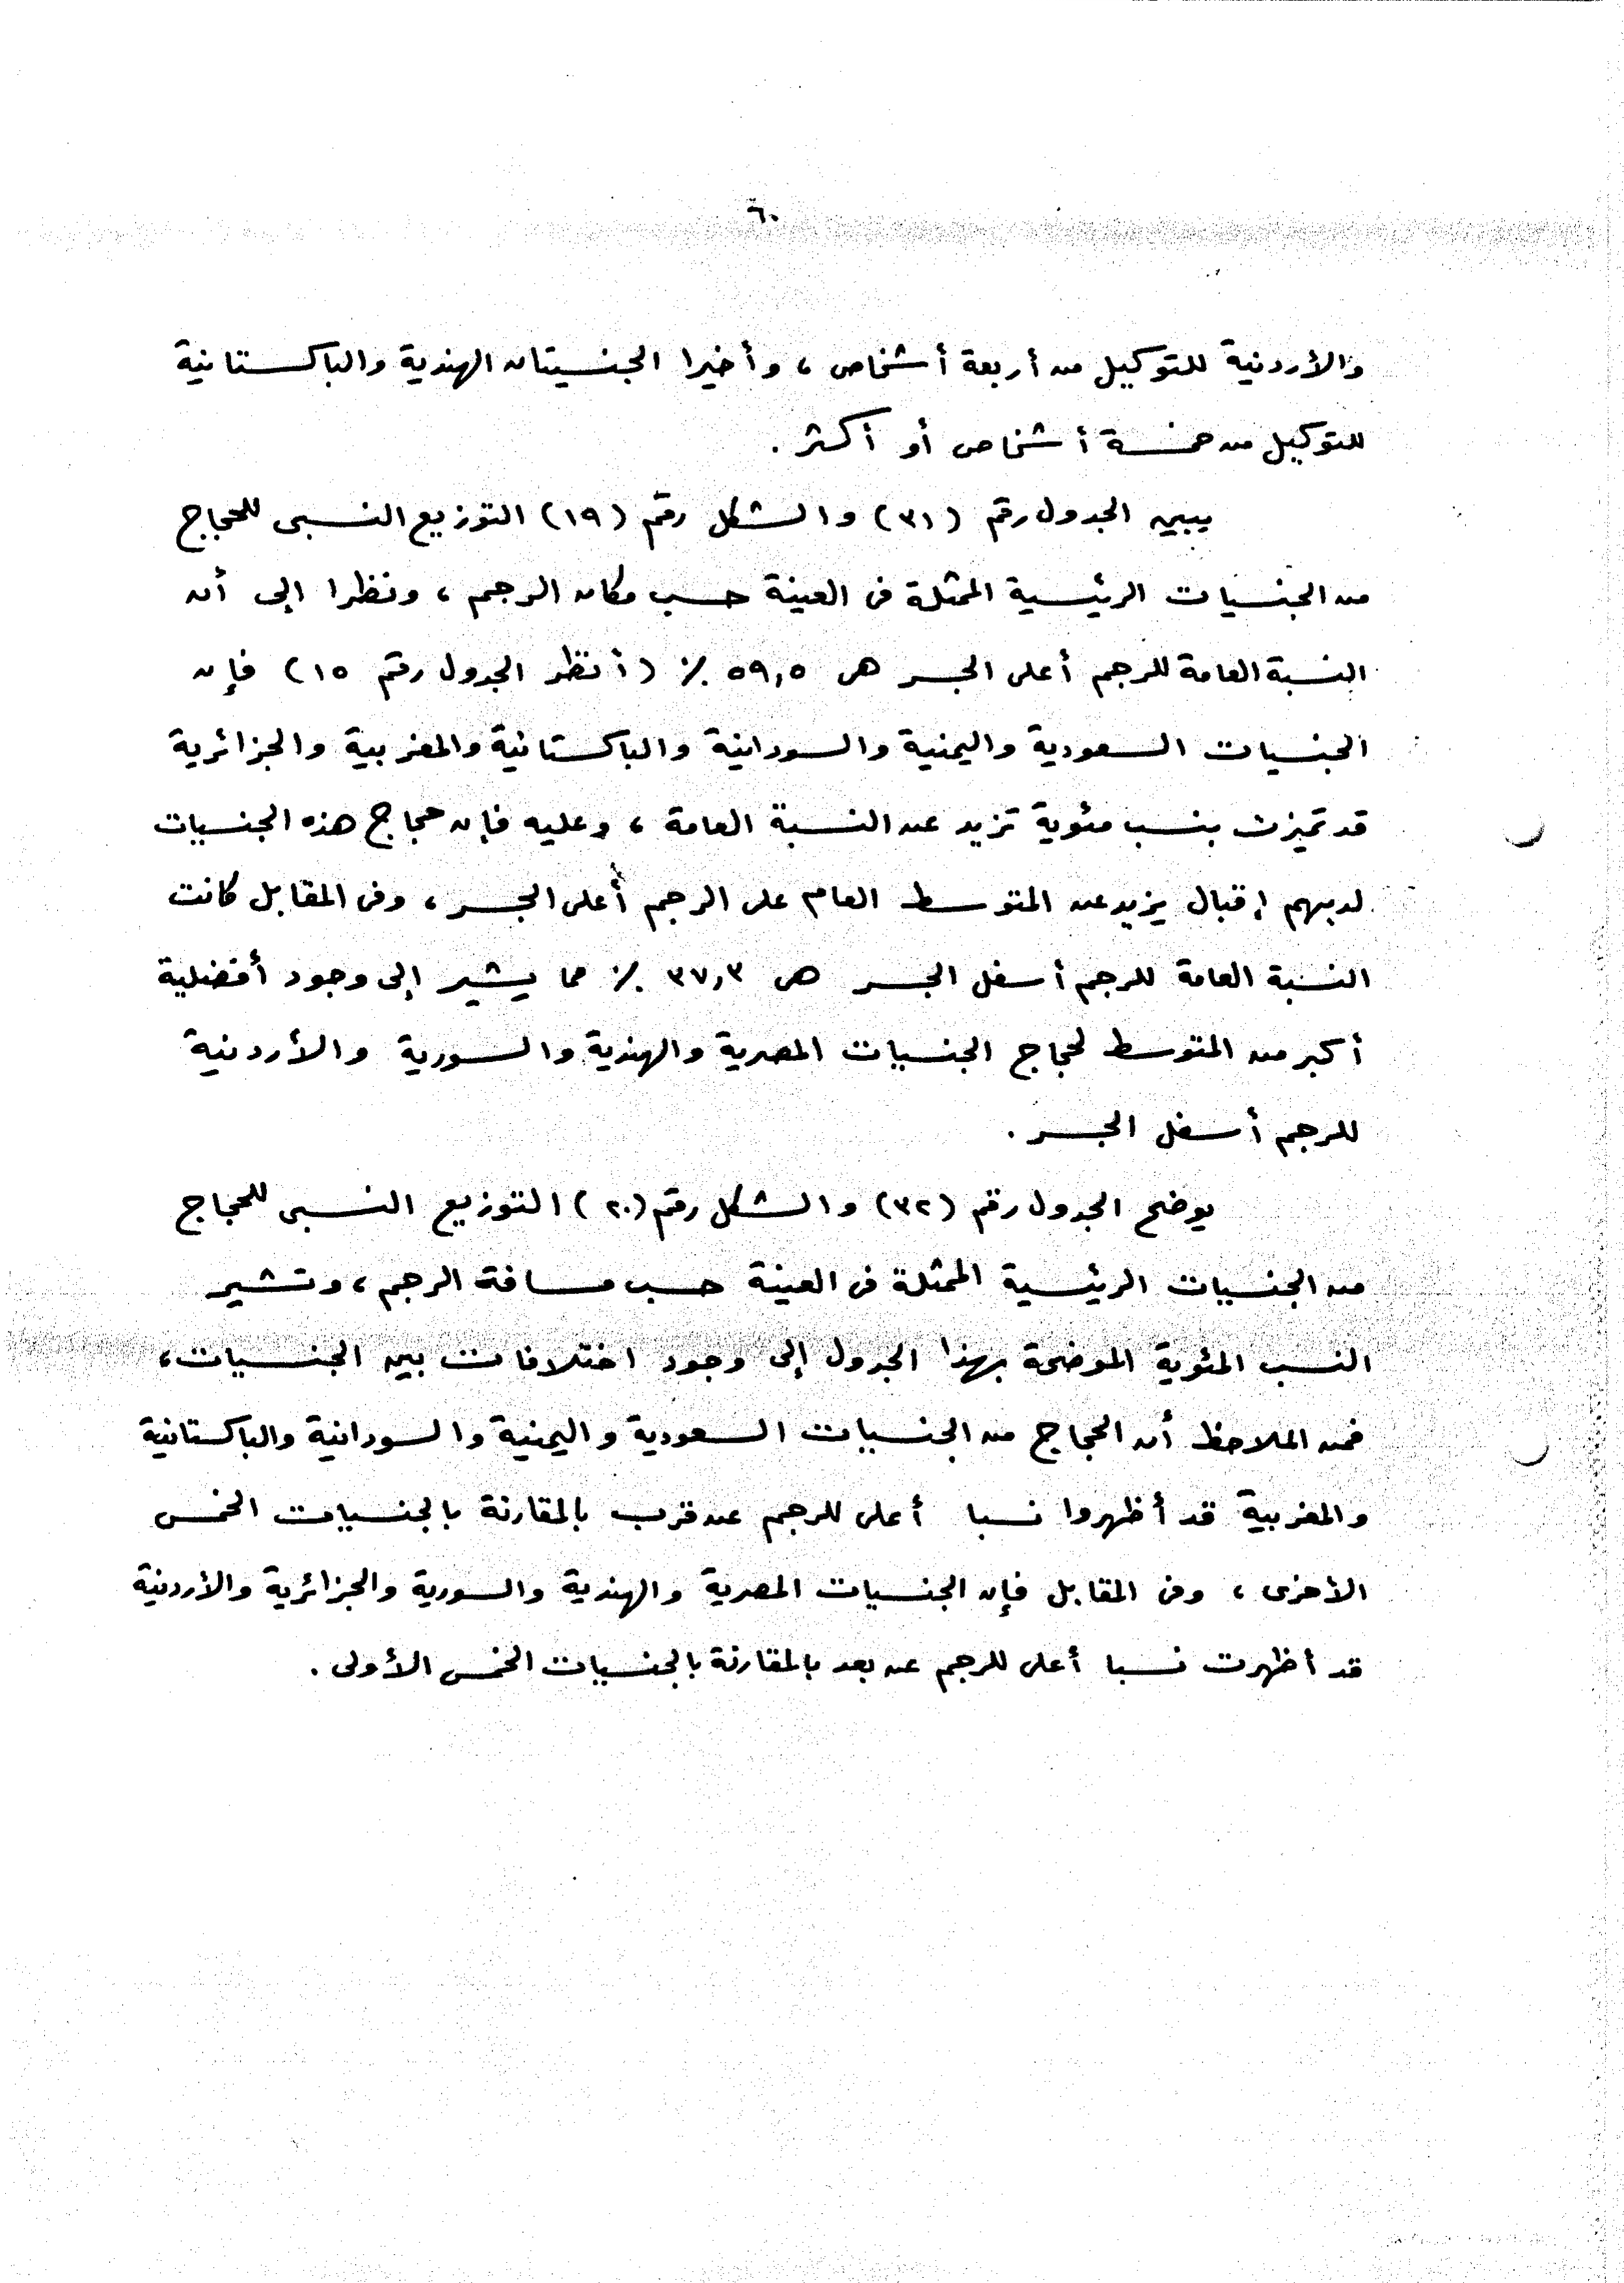 ٦٠
والأردنية للتوكيل من أربعة أشخاص ، وأخيرا الجنسيتان الهندية والباكستانية
للتوكيل من خمسة أشخاص أو أكثر .
يبين الجدول رقم (٣١) والشكل رقم (١٩) التوزيع النسبى للحجاج
من الجنسيات الرئيسية الممثلة فى العينة حسب مكان الرجم ، ونظرا إلى أن
النسبة العامة للرجم أعلى الجسر هى ٥٩,٥ ٪ (أنظر الجدول رقم ١٥) فإن
الجنسيات السعودية واليمنية والسودانية والباكستانية والمغربية والجزائرية
قد تميزت بنسب مئوية تزيد عن النسبة العامة ، وعليه فإن حجاج هذه الجنسيات
لديهم إقبال يزيد عن المتوسط العام على الرجم أعلى الجسر ، وفى المقابل كانت
النسبة العامة للرجم أسفل الجسر هى ٣٧,٣ ٪ مما يشير إلى وجود أفضلية
أكبر من المتوسط لحجاج الجنسيات المصرية والهندية والسورية والأردنية
للرجم أسفل الجسر .
يوضح الجدول رقم (٣٢) والشكل رقم (٢٠) التوزيع النسبى للحجاج
من الجنسيات الرئيسية الممثلة فى العينة حسب مسافة الرجم ، وتشير
النسب المئوية الموضحة بهذا الجدول إلى وجود اختلافات بين الجنسيات ،
فمن الملاحظ أن الحجاج من الجنسيات السعودية واليمنية والسودانية والباكستانية
والمغربية قد أظهروا نسبا أعلى للرجم عن قرب بالمقارنة بالجنسيات الخمس
الأخرى ، وفى المقابل فإن الجنسيات المصرية والهندية والسورية والجزائرية والأردنية
قد أظهرت نسبا أعلى للرجم عن بعد بالمقارنة بالجنسيات الخمس الأولى .